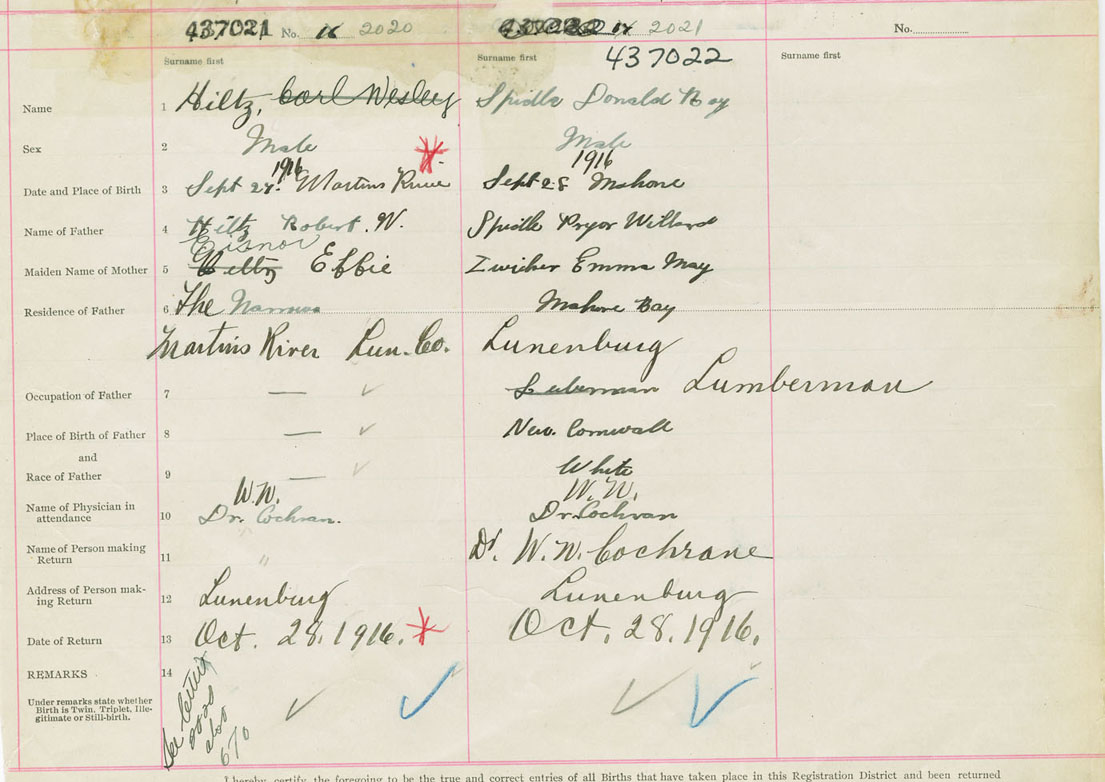 437021 No. 16 2020 17 2021 No.
437022
Surname first Surname first Surname first
Name 1 Hiltz, Carl Wesley Spidle Donald Ray
Sex 2 Male Male
1916 1916
Date and Place of Birth 3 Sept 27. Martins River Sept 28 Mahone
Name of Father 4 Hiltz Robert. W. Spidle Pryor Willard
Eisnor
Maiden Name of Mother 5 Hiltz Effie Zwicker Emma May
Residence of Father 6 The Narrows Mahone Bay
Martins River Lun. Co. Lunenburg
Occupation of Father 7 — Lumberman
Place of Birth of Father 8 — New Cornwall
and
Race of Father 9 — White
W.W. W.W.
Name of Physician in
attendance 10 Dr. Cochran. Dr. Cochran
Name of Person making
Return 11 " Dr. W. W. Cochrane
Address of Person mak-
ing Return 12 Lunenburg Lunenburg
Date of Return 13 Oct. 28. 1916. Oct. 28. 1916.
REMARKS 14
Under remarks state whether
Birth is Twin, Triplet, Ille-
gitimate or Still-birth.
See
also
670
I hereby certify the foregoing to be the true and correct entries of all Births that have taken place in this Registration District and been returned